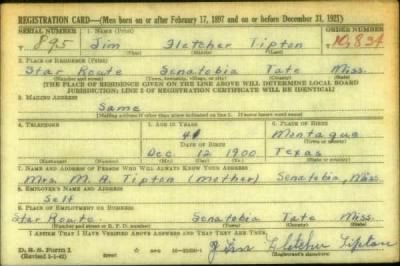 REGISTRATION CARD—(Men born on or after February 17, 1897 and on or before December 31, 1921)
SERIAL NUMBER 1. NAME (Print) ORDER NUMBER
T 895 Jim Fletcher Tipton 10,834
(First) (Middle) (Last)
2. PLACE OF RESIDENCE (Print)
Star Route Senatobia Tate Miss.
(Number and street) (Town, township, village, or city) (County) (State)
[THE PLACE OF RESIDENCE GIVEN ON THE LINE ABOVE WILL DETERMINE LOCAL BOARD
JURISDICTION; LINE 2 OF REGISTRATION CERTIFICATE WILL BE IDENTICAL]
3. MAILING ADDRESS
Same
(Mailing address if other than place indicated on line 2. If same insert word same)
4. TELEPHONE 5. AGE IN YEARS 6. PLACE OF BIRTH
41 Montague
DATE OF BIRTH (Town or county)
Dec. 12 1900 Texas
(Exchange) (Number) (Mo.) (Day) (Yr.) (State or country)
7. NAME AND ADDRESS OF PERSON WHO WILL ALWAYS KNOW YOUR ADDRESS
Mrs M. A. Tipton (mother) Senatobia, Miss
8. EMPLOYER'S NAME AND ADDRESS
Self
9. PLACE OF EMPLOYMENT OR BUSINESS
Star Route. Senatobia Tate Miss.
(Number and street or R. F. D. number) (Town) (County) (State)
I AFFIRM THAT I HAVE VERIFIED ABOVE ANSWERS AND THAT THEY ARE TRUE.
D. S. S. Form 1
(Revised 1-1-42) (over)
Jim Fletcher Tipton
(Registrant's signature)